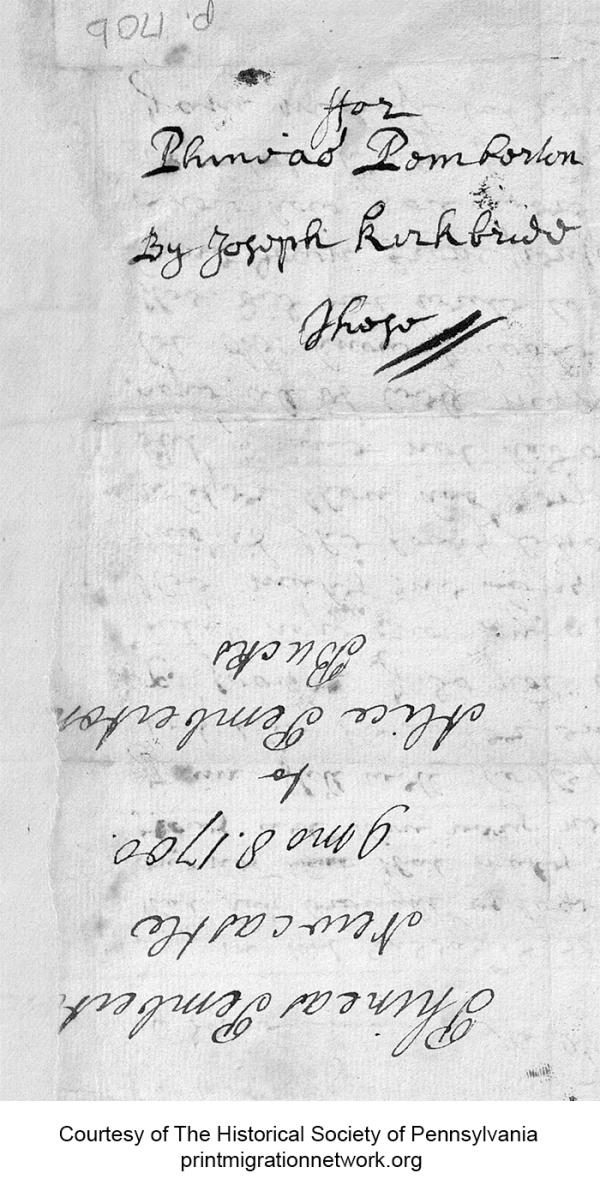 ffor
Phineas Pemberton
By Joseph Kirkbride
These
Phineas Pembert.
Newcastle
9 mo 8. 1700.
to
Alice Pemberton
Bucks
Courtesy of The Historical Society of Pennsylvania
printmigrationnetwork.org